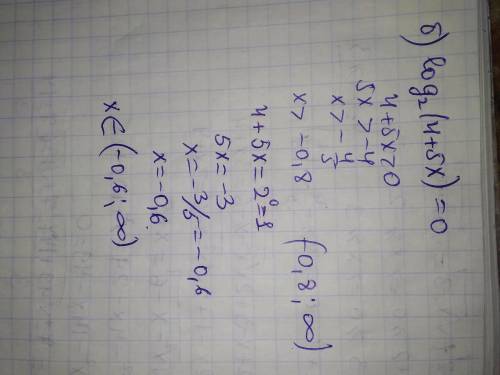 б) log₂(4+5x)=0
4+5x>0
5x>-4
x>-4/5
x>-0,8 (-0,8; ∞)
4+5x=2⁰=1
5x=-3
x=-3/5=-0,6
x=-0,6
x∈(-0,6; ∞)